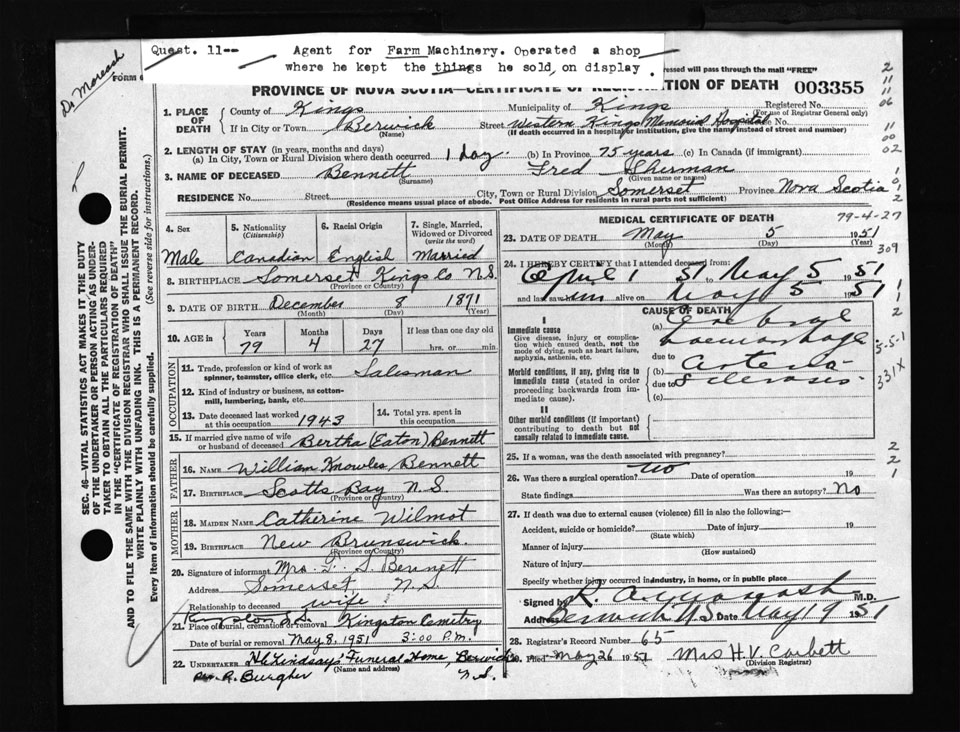 Quest. 11-- Agent for Farm Machinery. Operated a shop
where he kept the things he sold, on display.
Dr Moreash
FORM
ressed will pass through the mail "FREE"
PROVINCE OF NOVA SCOTIA—CERTIFICATE OF REGISTRATION OF DEATH 003355
1. PLACE OF DEATH County of Kings Municipality of Kings Registered No.
(For use of Registrar General only)
If in City or Town Berwick Street Western Kings Memorial Hospital No.
(Name) (If death occurred in a hospital or institution, give the name instead of street and number)
2. LENGTH OF STAY (in years, months and days)
(a) In City, Town or Rural Division where death occurred 1 day. (b) In Province 75 years (c) In Canada (if immigrant)
3. NAME OF DECEASED Bennett Fred Sherman
(Surname) (Given name or names)
RESIDENCE No. Street City, Town or Rural Division Somerset Province Nova Scotia
(Residence means usual place of abode. Post Office Address for residents in rural parts not sufficient)
4. Sex 5. Nationality (Citizenship) 6. Racial Origin 7. Single, Married, Widowed or Divorced (write the word)
Male Canadian English Married
8. BIRTHPLACE Somerset Kings Co N.S.
(Province or Country)
9. DATE OF BIRTH December 8 1871
(Month) (Day) (Year)
10. AGE in Years Months Days If less than one day old
79 4 27 hrs. or min.
OCCUPATION
11. Trade, profession or kind of work as spinner, teamster, office clerk, etc. Salesman
12. Kind of industry or business, as cotton-mill, lumbering, bank, etc.
13. Date deceased last worked at this occupation 1943 14. Total yrs. spent in this occupation
15. If married give name of wife or husband of deceased Bertha (Eaton) Bennett
FATHER
16. NAME William Knowles Bennett
17. BIRTHPLACE Scotts Bay N.S.
(Province or Country)
MOTHER
18. MAIDEN NAME Catherine Wilmot
19. BIRTHPLACE New Brunswick.
(Province or Country)
20. Signature of informant Mrs. F. S. Bennett
Address Somerset N.S
Relationship to deceased wife
Kingston N.S.
21. Place of burial, cremation or removal Kingston Cemetry
Date of burial or removal May 8, 1951 3:00 P.M.
22. UNDERTAKER H.C. Lindsays' Funeral Home, Berwick
(Name and address)
Per R. Burgher N.S.
MEDICAL CERTIFICATE OF DEATH
79-4-27
23. DATE OF DEATH May 5 1951
(Month) (Day) (Year)
24. I HEREBY CERTIFY that I attended deceased from:
April 1 51 to May 5 1951
and last saw him alive on May 5 1951
CAUSE OF DEATH
I
Immediate cause
Give disease, injury or complication which caused death, not the mode of dying, such as heart failure, asphyxia, asthenia, etc.
(a) Cerebral
haemorrhage
due to
Morbid conditions, if any, giving rise to immediate cause (stated in order proceeding backwards from immediate cause).
(b) Arterio
due to sclerosis
(c)
II
Other morbid conditions (if important) contributing to death but not causally related to immediate cause.
25. If a woman, was the death associated with pregnancy?
26. Was there a surgical operation? no Date of operation 19
State findings Was there an autopsy? No
27. If death was due to external causes (violence) fill in also the following:—
Accident, suicide or homicide? Date of injury 19
(State which)
Manner of injury
(How sustained)
Nature of injury
Specify whether injury occurred in industry, in home, or in public place
Signed by M.D.
Address Berwick NS Date May 19 1951
28. Registrar's Record Number 65
Filed May 26 1951 Mrs H.V. Corbett
(Division Registrar)
SEC. 46—VITAL STATISTICS ACT MAKES IT THE DUTY
OF THE UNDERTAKER OR PERSON ACTING AS UNDER-
TAKER TO OBTAIN ALL THE PARTICULARS REQUIRED
IN THE "CERTIFICATE OF REGISTRATION OF DEATH"
AND TO FILE THE SAME WITH THE DIVISION REGISTRAR WHO SHALL ISSUE THE BURIAL PERMIT.
WRITE PLAINLY WITH UNFADING INK. THIS IS A PERMANENT RECORD.
Every item of information should be carefully supplied. (See reverse side for instructions.)
2
11
11
06
11
00
02
1
0
1
2
309
1
1
2
5-5-1
331X
2
2
1